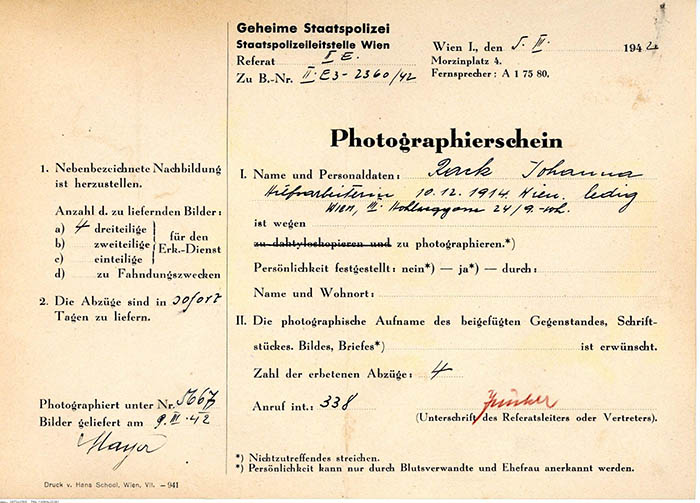 Geheime Staatspolizei
Staatspolizeileitstelle Wien
Referat II E.
Zu B.-Nr. II E3-2360/42
Wien I., den 5. III. 1942
Morzinplatz 4.
Fernsprecher: A 1 75 80.
Photographierschein
1. Nebenbezeichnete Nachbildung
ist herzustellen.
Anzahl d. zu liefernden Bilder:
a) 4 dreiteilige
b) zweiteilige
c) einteilige
für den
Erk.-Dienst
d) zu Fahndungszwecken
2. Die Abzüge sind in sofort
Tagen zu liefern.
Photographiert unter Nr. 5667
Bilder geliefert am 9. III. 42
Mayer
Druck v. Hans School, Wien, VII. – 941
I. Name und Personaldaten: Johanna
Hilfsarbeiterin 10.12.1914. Wien. ledig
Wien, III. 24/9.
ist wegen
zu dahtyloshopieren und zu photographieren.*)
Persönlichkeit festgestellt: nein*) — ja*) — durch:
Name und Wohnort:
II. Die photographische Aufname des beigefügten Gegenstandes, Schrift-
stückes. Bildes, Briefes*) ist erwünscht.
Zahl der erbetenen Abzüge: 4
Anruf int.: 338
(Unterschrift des Referatsleiters oder Vertreters).
*) Nichtzutreffendes streichen.
*) Persönlichkeit kann nur durch Blutsverwandte und Ehefrau anerkannt werden.